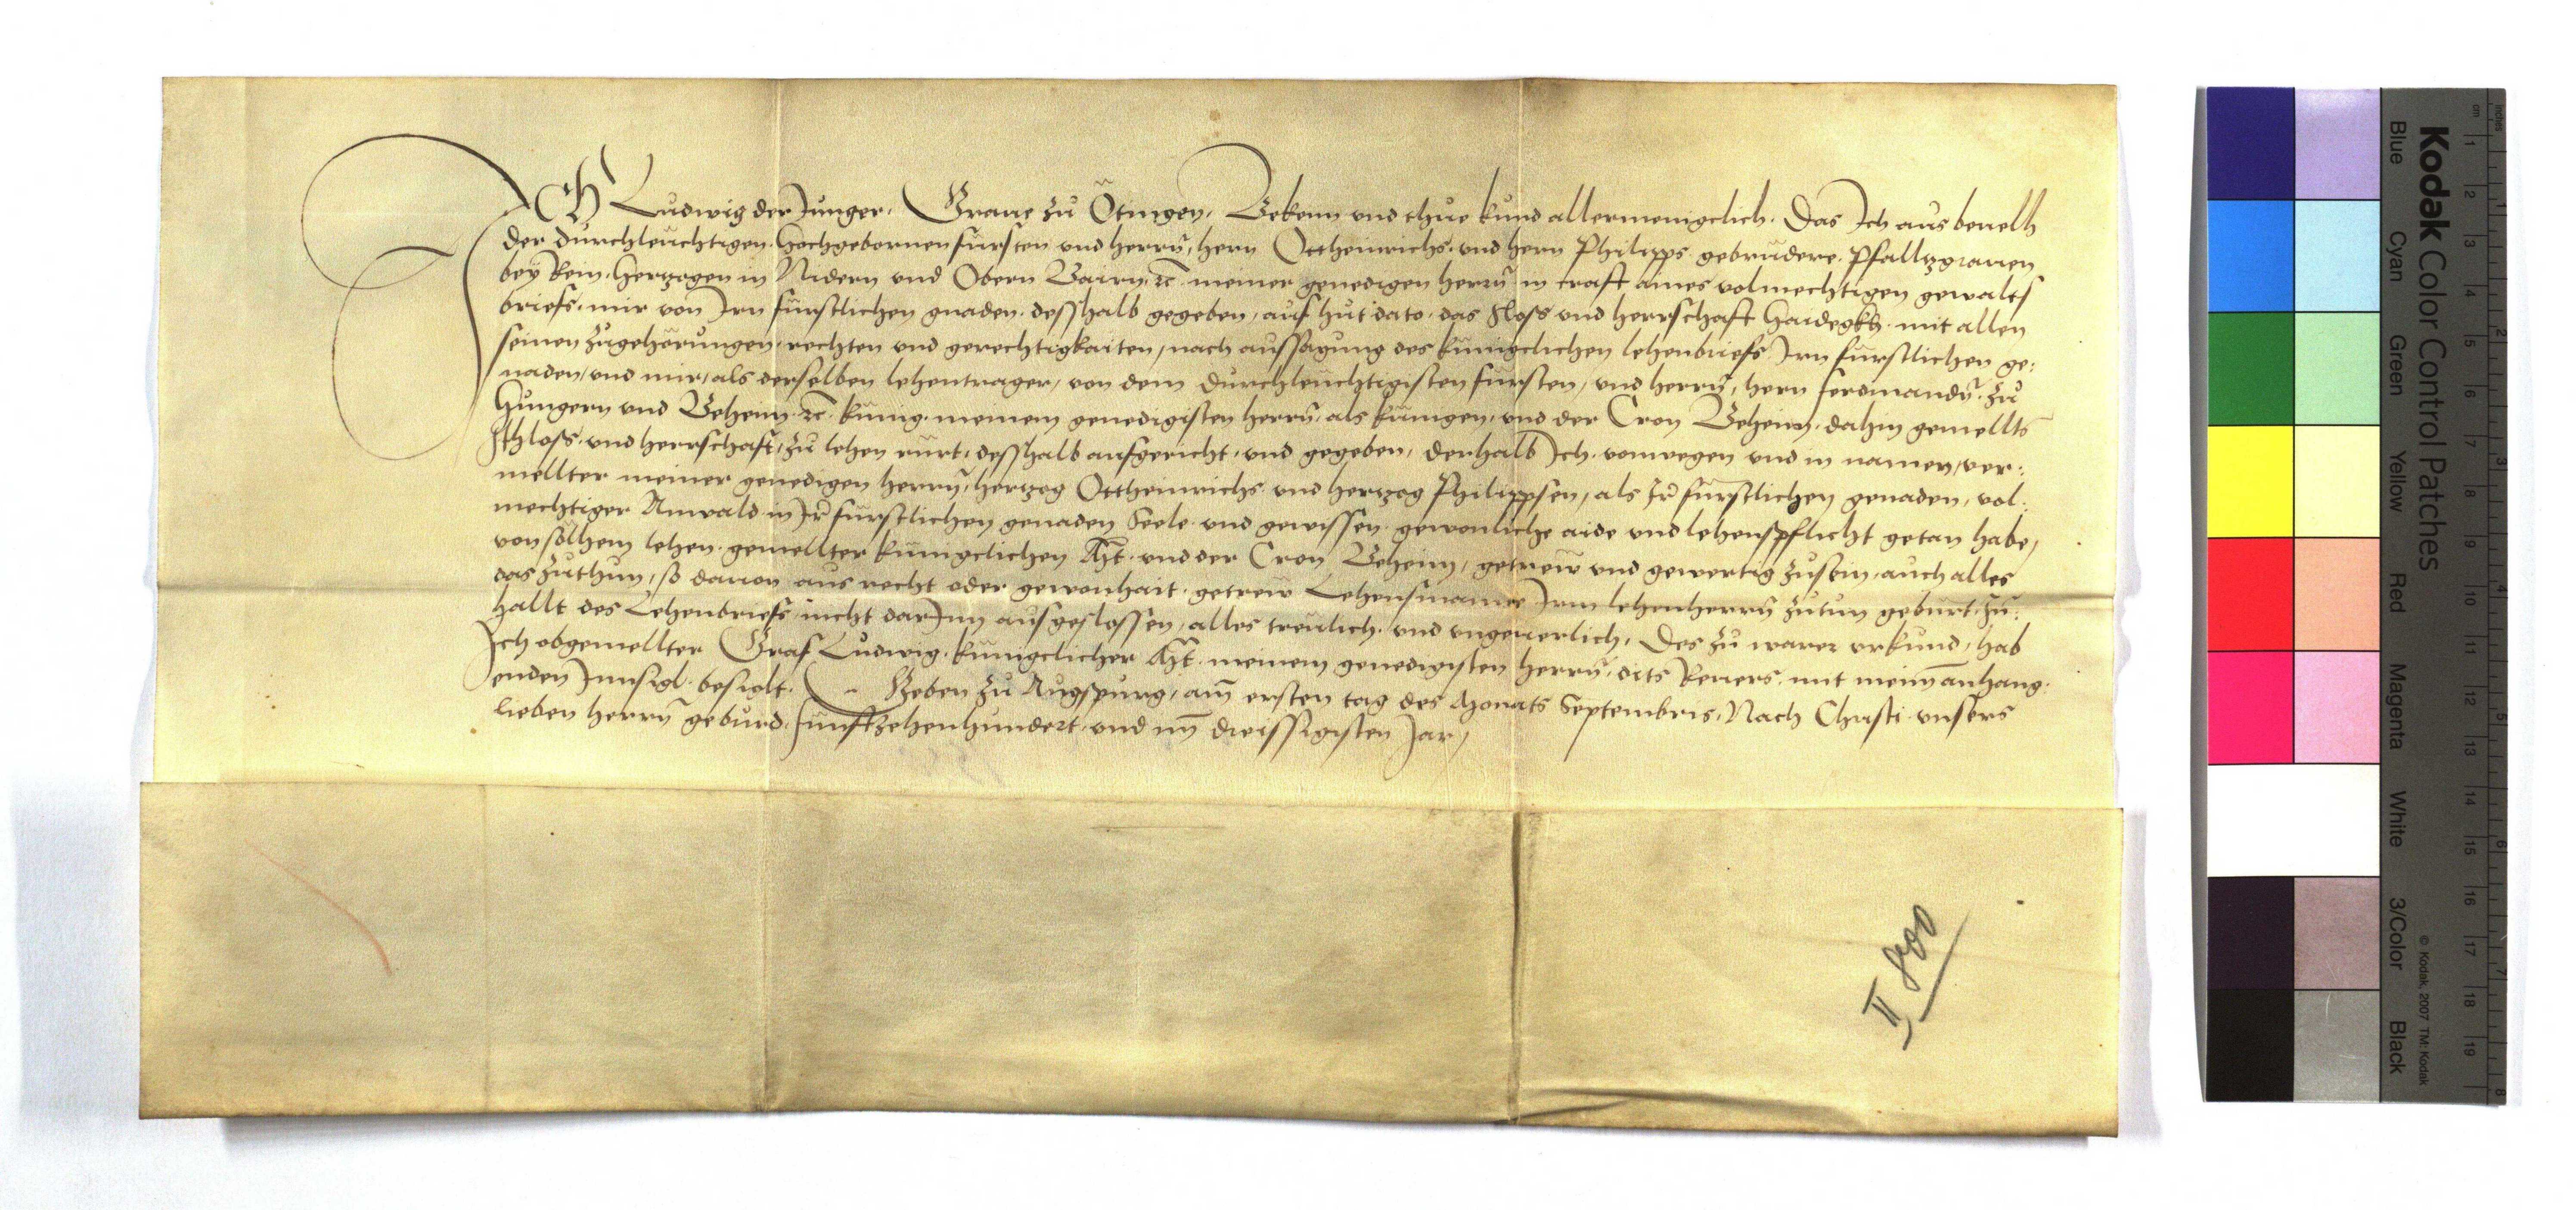 ICH Ludwig der Junger, Graue zů Ötingen, Bekenn vnd thue kund allermenigclich. Das Ich aus beuelh
der durchleuchtigen, Hochgebornen fürsten vnd herrn, hern Ottheinrichs, vnd hern Philipps gebrüdere, Pfalltzgrauen
bey Rein, Hertzogen in Nidern vnd Obern Bairn, ꝛc. meiner genedigen herrn in craft aines volmechtigen gewalts
briefs, mir von Irn fürstlichen gnaden, desshalb gegeben, auf hůt dato, das Sloss vnd herrschaft Haidegkh, mit allen
seinen zůgehörungen, rechten vnd gerechtigkaiten, nach aussagung des künigclichen lehenbriefs, Irn fürstlichen ge:
naden, vnd mir, als derselben lehentrager, von dem Durchleuchtigisten fürsten, vnd herrn, hern Ferdinandn, zů
Hungern vnd Beheim ꝛc. künig, meinem genedigisten herrn, als künigen, vnd der Cron Beheim, dahin gemellts
schloss, vnd herrschaft, zů lehen rürt, desshalb aufgericht, vnd gegeben, derhalb Ich, vonwegen vnd in namen, ver:
mellter meiner genedigen herrn, hertzog Ottheinrichs vnd hertzog Philippsen, als Ir fürstlichen genaden, vol:
mechtiger Anwald, in Ir fürstlichen genaden Seele vnd gewissen, gewonliche aide vnd lehenspflicht getan habe,
von sölhem lehen, gemellter künigclichen Mt. vnd der Cron Beheim, getrew vnd gewertig zůsein, auch alles
das zůthun, so dauon aus recht oder gewonhait, getrew Lehensmanne Irm lehenherrn zůtun gebürt, zů:
hallt des Lehenbriefs, nicht darInn ausgeslossen, alles treulich, vnd vngeuerlich, Des zů warer vrkund, hab
Ich obgemellter Graf Ludwig, künigclicher Mt. meinem genedigisten herrn, dits Reuers, mit meinem anhang:
enden Innsigl, besiglt. Geben zů Augspurg, am ersten tag des Monats Septembris, Nach Christi vnsers
lieben herrn gebürd, fünffzehenhundert, vnd im dreissigisten Jar,
II 800
Kodak Color Control Patches
Blue Cyan Green Yellow Red Magenta White 3/Color Black
© Kodak, 2007 TM: Kodak
cm 1 2 3 4 5 6 7 8 9 10 11 12 13 14 15 16 17 18 19
inches 1 2 3 4 5 6 7 8